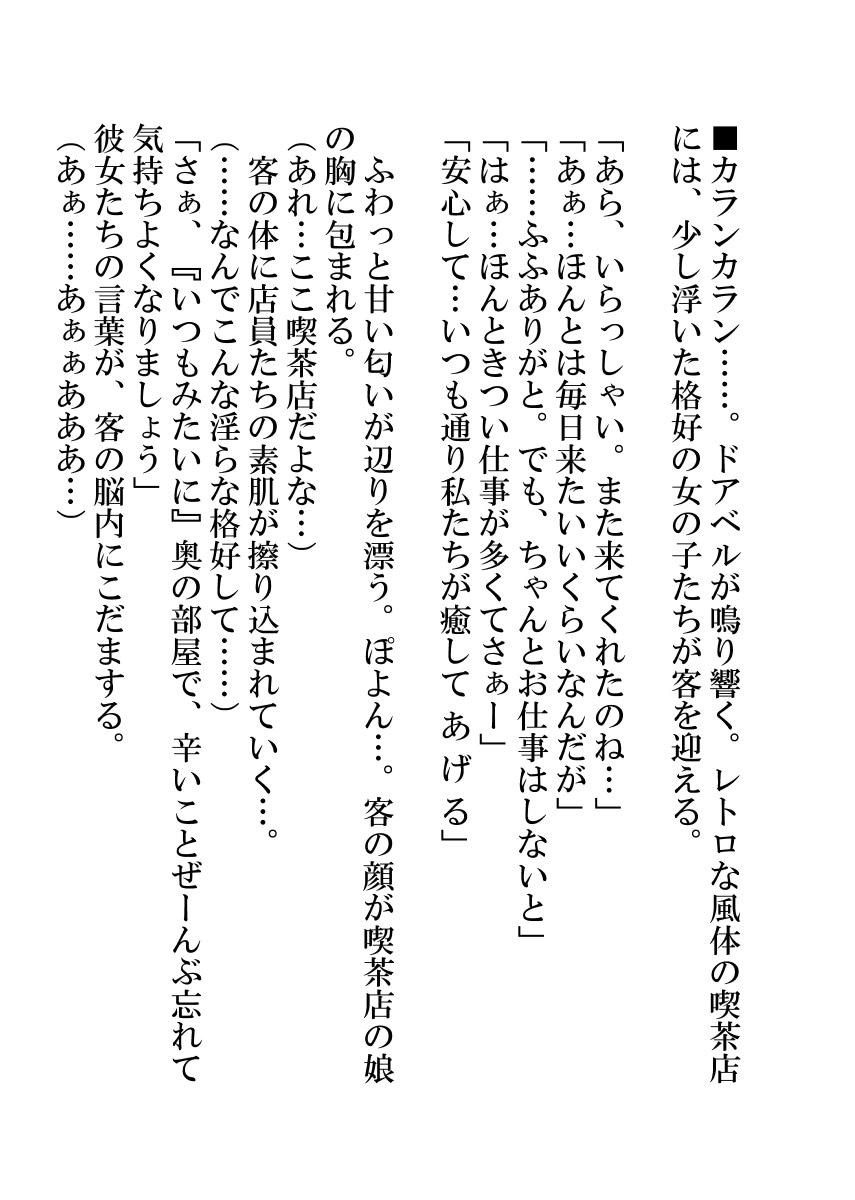 ■カランカラン……。ドアベルが鳴り響く。レトロな風体の喫茶店
には、少し浮いた格好の女の子たちが客を迎える。
「あら、いらっしゃい。また来てくれたのね…」
「あぁ…ほんとは毎日来たいいくらいなんだが」
「……ふふありがと。でも、ちゃんとお仕事はしないと」
「はぁ…ほんときつい仕事が多くてさぁー」
「安心して…いつも通り私たちが癒して あ げ る」
　ふわっと甘い匂いが辺りを漂う。ぽよん…。客の顔が喫茶店の娘
の胸に包まれる。
（あれ…ここ喫茶店だよな…）
　客の体に店員たちの素肌が擦り込まれていく…。
（……なんでこんな淫らな格好して……）
「さぁ、『いつもみたいに』奥の部屋で、辛いことぜーんぶ忘れて
気持ちよくなりましょう」
彼女たちの言葉が、客の脳内にこだまする。
（あぁ……あぁぁあああ…）